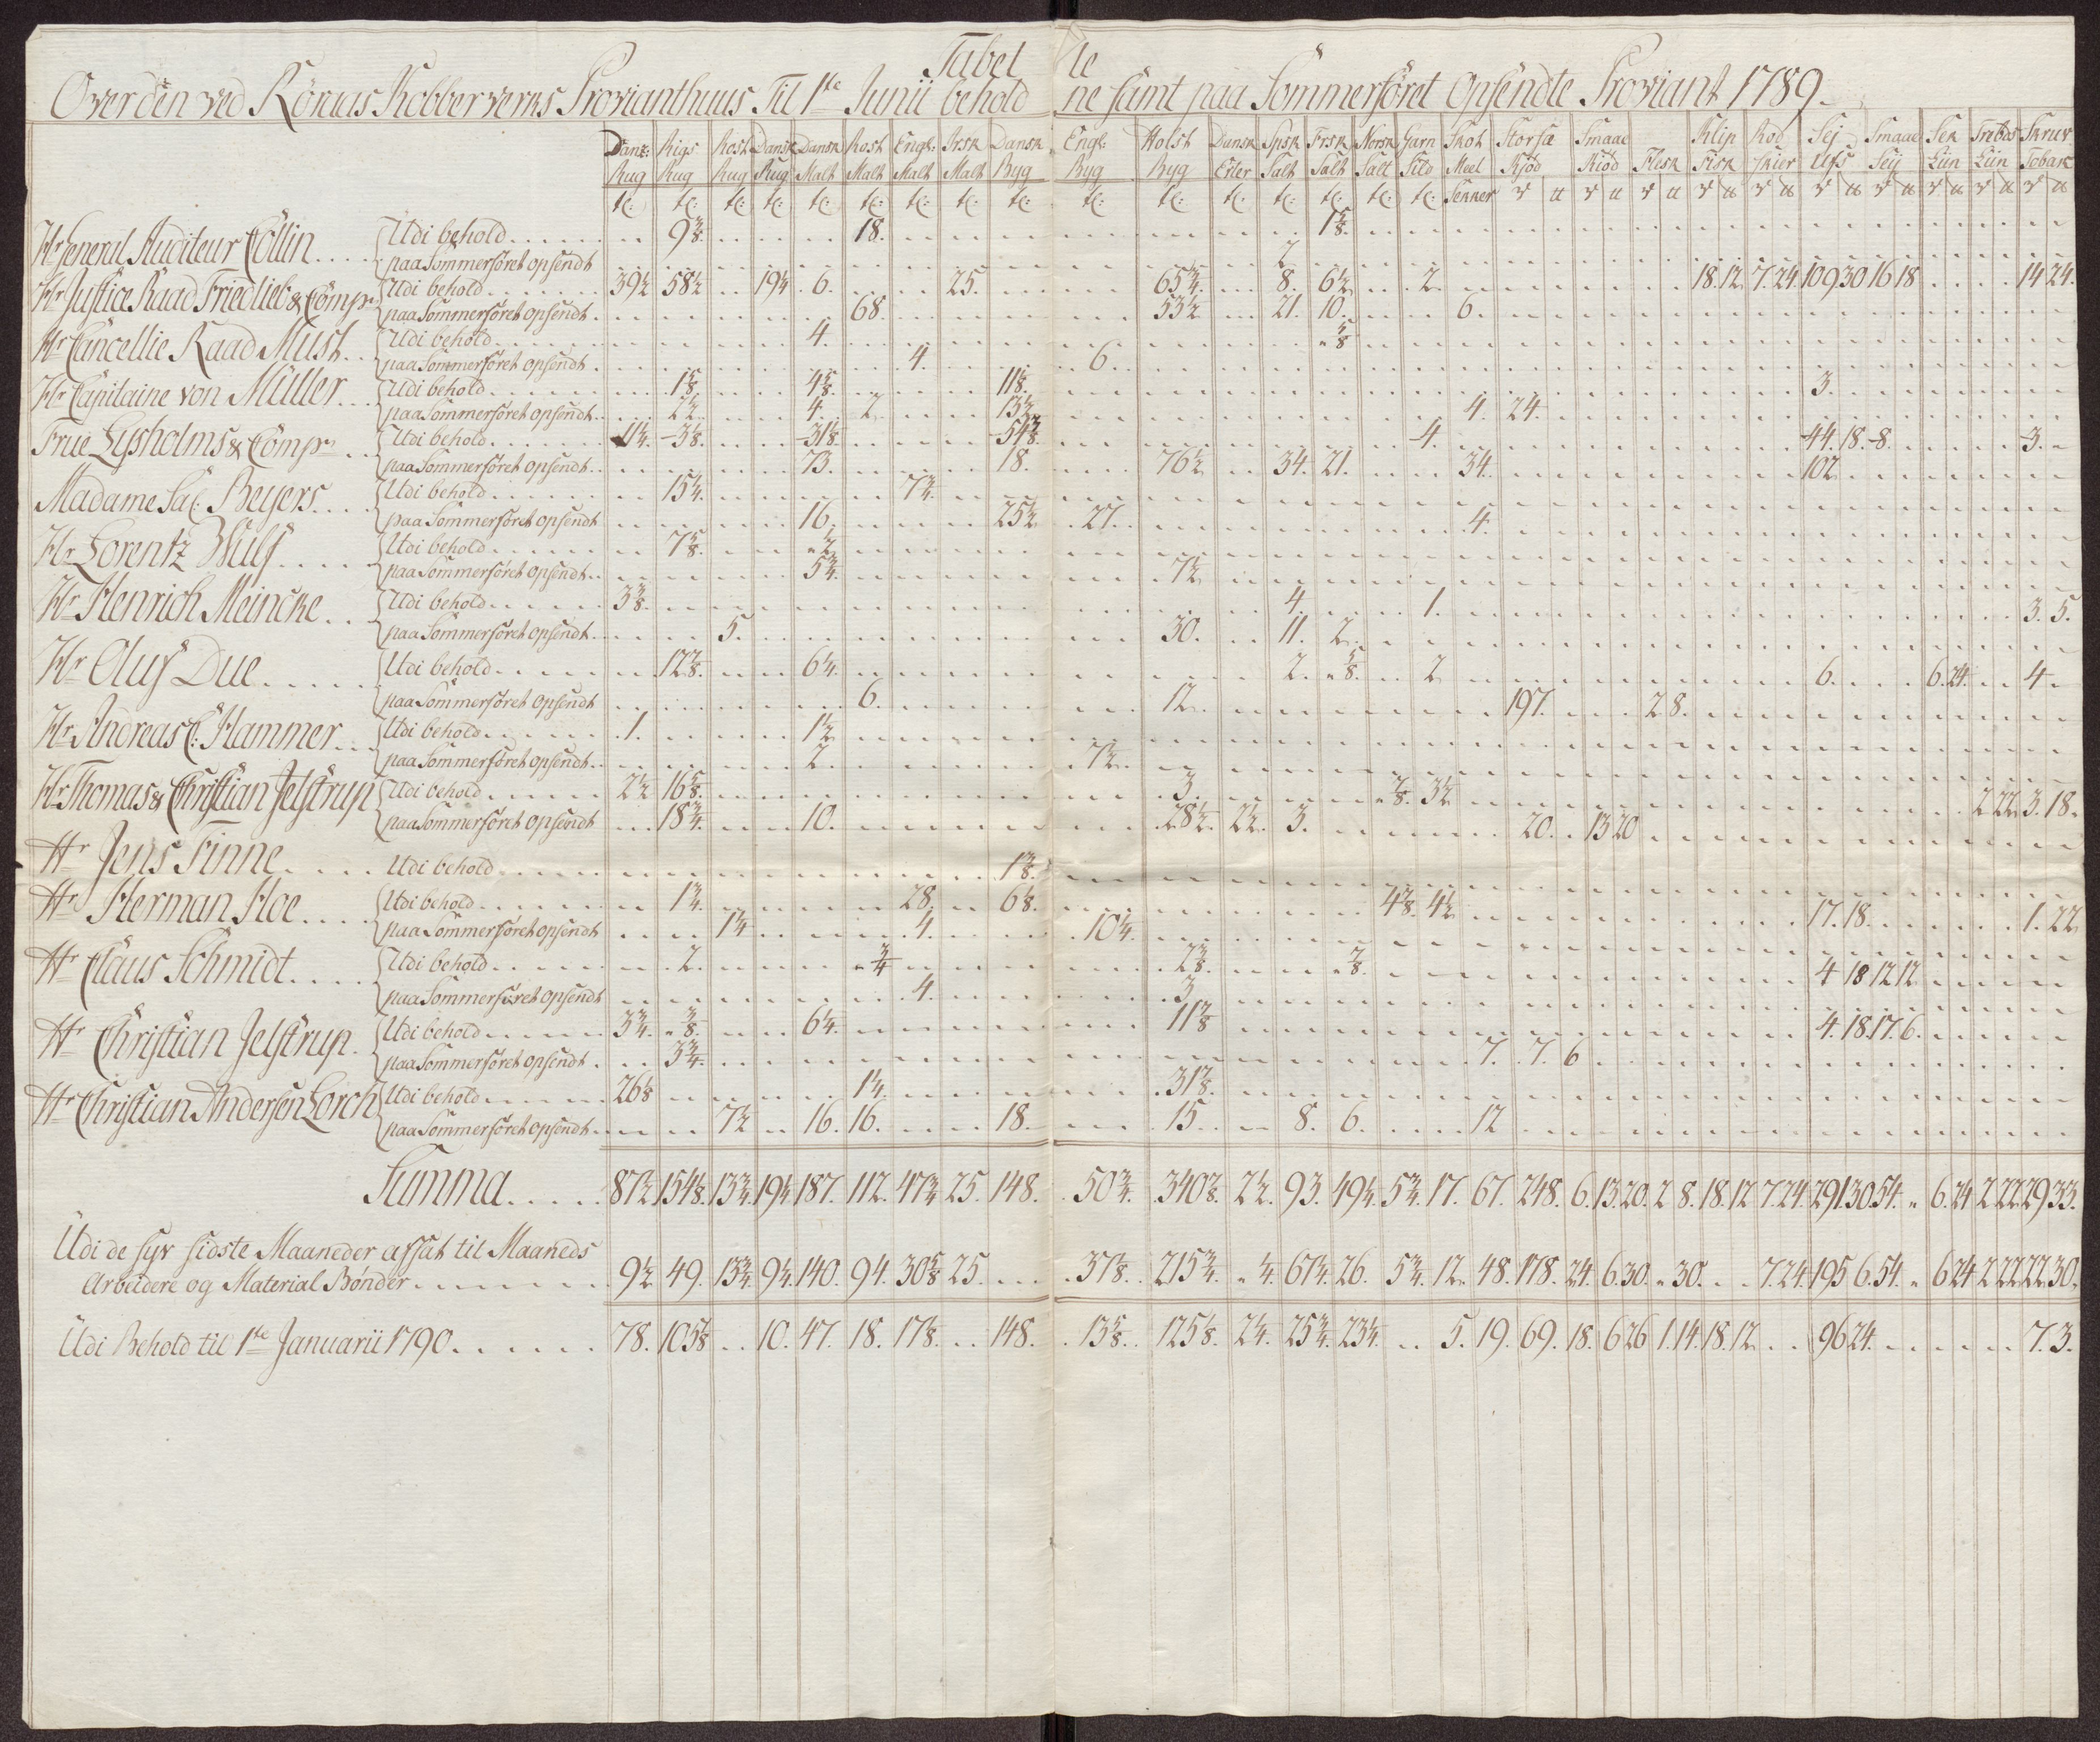 Tabelle
Over den ved Röraas Kobberverks Provianthuus Til 1ste Junii beholdne samt paa Sommerföret Opsendte Proviant 1789.
Dansk Rug Rigs Rug Rost Rug Dansk Malt Rost Malt Engl: Malt Irsk Malt Dansk Byg Engl: Byg Holst Byg Dansk Erter Spsk Salt Frsk Salt Norsk Salt Garn Sild Skot Meel Storfæ Kjöd Smaae Kiöd Flesk Klip Fisk Rod Skier Sej Ufs Smaae Seij Sek Liin Skruv Tobak
Tenner
Hr General Auditeur Collin Udi behold 9 3/8. 18. 1 5/8.
paa Sommerföret opsendt 2
Hr Justice Raad Friedlieb & Comp: Udi behold 39 1/2 58 1/2 19 1/4 6. 25. 65 3/4. 8. 6 1/2 2. 18. 12. 7. 24. 109 30 16 18 14 24.
paa Sommerföret opsendt. 68. 53 1/2 21. 10. 6.
Hr Cancellie Raad Must Udi behold 4. 5/8
paa Sommerföret opsendt 4. 6.
Hr Capitaine von Müller Udi behold 1 5/8. 4 5/8. 11 1/8. 3.
paa Sommerföret opsendt 2 1/2 4. 2. 13 1/2 4. 24
Frue Lysholms & Comp: Udi behold 11 1/4. 3 1/8. 31 1/8. 54 3/8. 4. 44. 18. 8. 3.
paa Sommerföret opsendt. 73. 18. 76 1/2 34. 21. 34. 102
Madame Sal: Beyers Udi behold 15 1/4. 7 3/4.
paa Sommerföret opsendt 16. 25 1/2 27. 4.
Hr Lorentz Wulf Udi behold 7 5/8. 1/2
paa Sommerföret opsendt. 5 3/4. 7 1/2
Hr Henrich Meincke Udi behold 3 3/8. 4. 1. 3. 5.
paa Sommerföret opsendt. 5. 30. 11. 2.
Hr Oluf Due Udi behold 12 7/8. 6 1/4. 2. 5/8. 2 6. 6. 24. 4.
paa Sommerföret opsendt 6. 12. 197. 2 8.
Hr Andreas C: Hammer Udi behold 1. 1 1/2
paa Sommerföret opsendt. 2. 7 1/2.
Hr Thomas & Christian Jelstrup Udi behold 2 1/2 16 5/8. 3. 7/8. 3 1/2 2 22 3. 18.
paa Sommerföret opsendt 18 3/4. 10. 28 1/2. 2 1/2. 3. 20. 13 20
Hr Jens Finne Udi behold 1 3/8.
Hr Herman Hoe Udi behold 1 1/4. 28. 6 1/8. 4 7/8. 4 1/2 17. 18. 1. 22
paa Sommerföret opsendt 1 1/4 4. 10 1/4.
Hr Claus Schmidt Udi behold 2. 3/4 2 3/8. 7/8. 4 18 12 12
paa Sommerföret opsendt 4. 3
Hr Christian Jelstrup. Udi behold 3 3/4. 3/8. 6 1/4. 11 7/8 4. 18. 17. 6.
paa Sommerföret opsendt. 3 3/4. 7. 7. 6
Hr Christian Andersen Lorch Udi behold 26 1/8 1 1/4. 31 7/8.
paa Sommerföret opsendt. 7 1/2 16. 16. 18. 15. 8. 6. 12
Summa 87 1/2 154 7/8. 13 3/4. 19 1/4 187. 112. 47 3/4 25. 148. 50 3/4. 340 7/8. 2 1/2. 93. 49 1/4. 5 3/4. 17. 67. 248. 6. 13. 20. 2 8. 18. 12 7. 24. 291. 30. 54. 6. 24 2 22 29 33.
Udi de syv sidste Maaneder afsat til Maaneds
Arbeidere og Material Bönder 9 1/2 49. 13 3/4. 9 1/4. 140. 94. 30 5/8 25. 37 1/8. 215 3/4. 1/4. 67 1/4. 26. 5 3/4. 12. 48. 178. 24. 6. 30. 30. 7. 24. 195 6. 54. 6 24 2 22 22 30.
Udi Behold til 1ste Januarii 1790 78. 105 7/8 10. 47. 18. 17 1/8. 148. 13 5/8. 125 1/8. 2 1/4. 25 3/4. 23 1/4. 5. 19. 69. 18. 6 26 1. 14. 18. 12. 96 24. 7. 3.